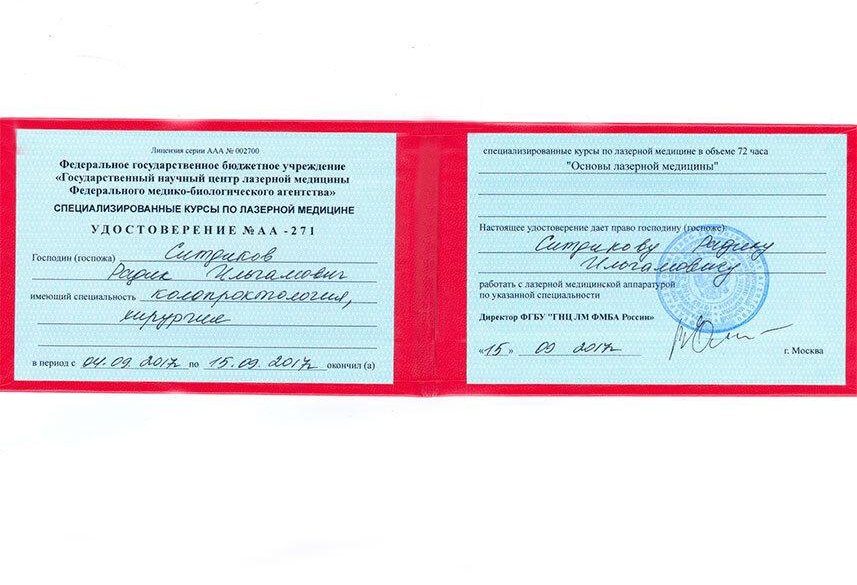 Лицензия серии ААА № 002700
Федеральное государственное бюджетное учреждение
«Государственный научный центр лазерной медицины
Федерального медико-биологического агентства»
СПЕЦИАЛИЗИРОВАННЫЕ КУРСЫ ПО ЛАЗЕРНОЙ МЕДИЦИНЕ
УДОСТОВЕРЕНИЕ № АА - 271
Господин (госпожа) Ситдиков
Радик Ильгамович
имеющий специальность колопроктология,
хирургия
в период с 04.09.2017г по 15.09.2017г окончил (а)
специализированные курсы по лазерной медицине в объеме 72 часа
"Основы лазерной медицины"
Настоящее удостоверение дает право господину (госпоже)
Ситдикову Радику
Ильгамовичу
работать с лазерной медицинской аппаратурой
по указанной специальности
Директор ФГБУ "ГНЦ ЛМ ФМБА России»
«15» 09 2017г г. Москва